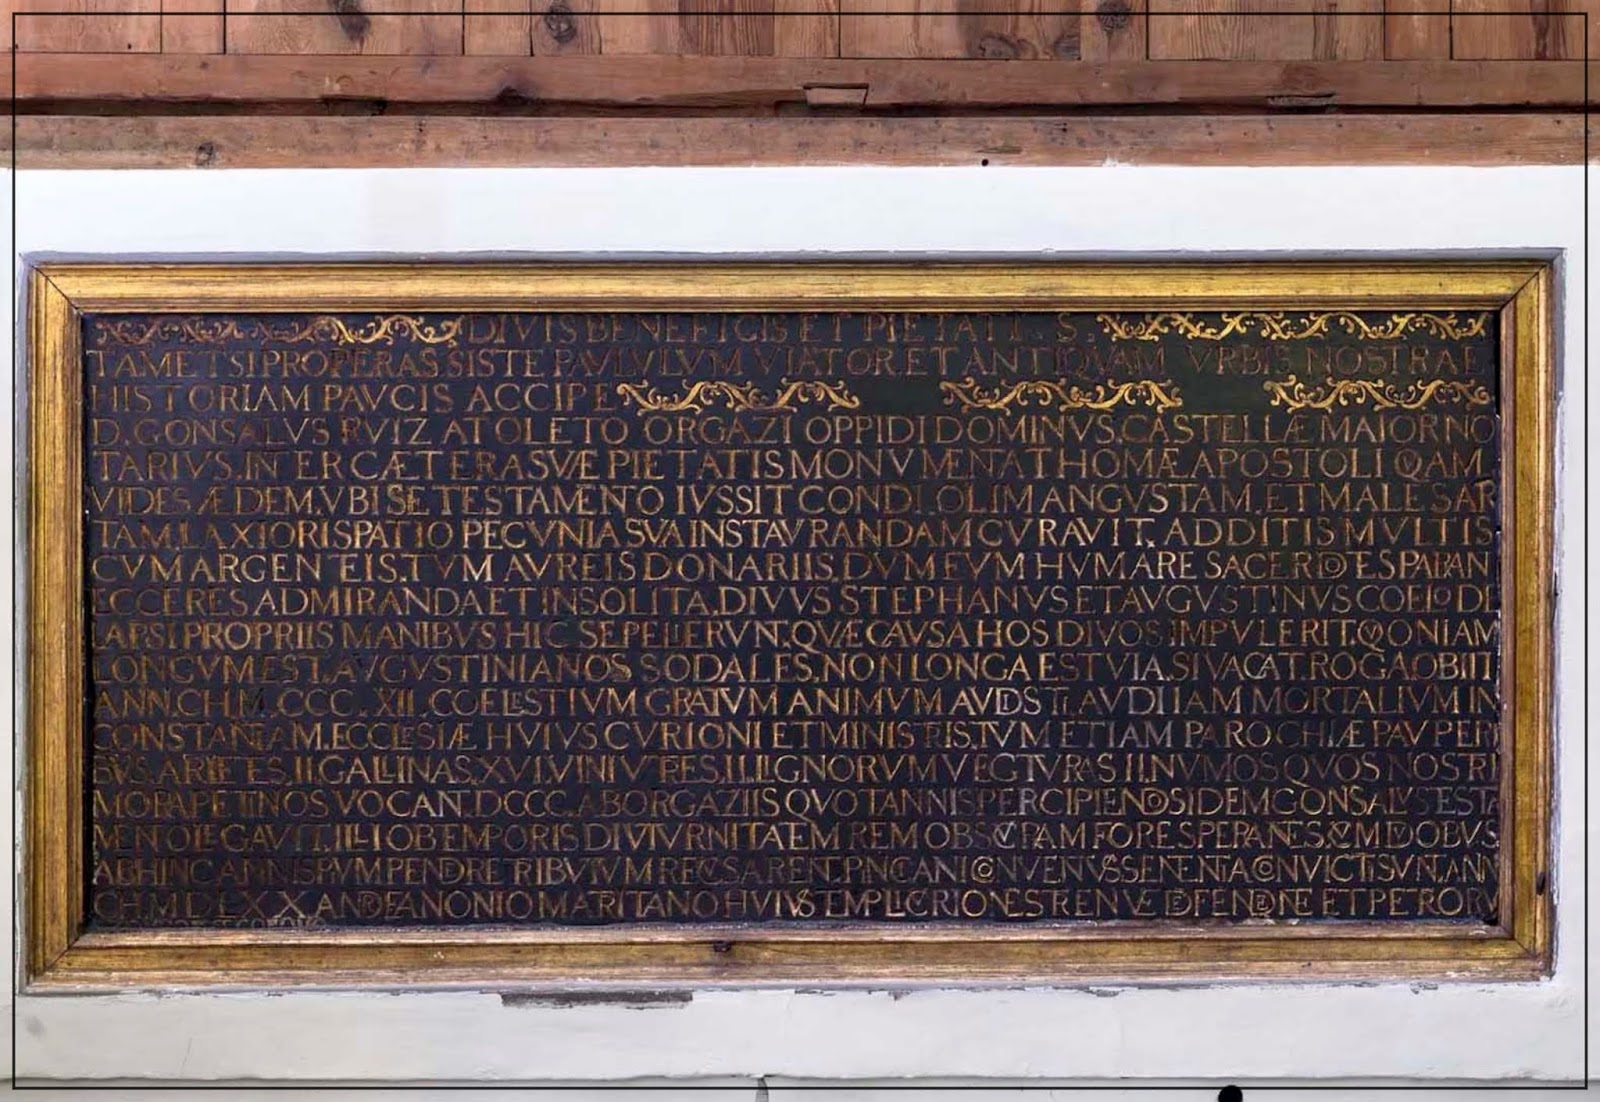 DIVIS BENEFICIS ET PIETATI. S.
TAMETSI PROPERAS SISTE PAVLVLVM VIATOR, ET ANTIQVAM VRBIS NOSTRAE
HISTORIAM PAVCIS ACCIPE
D. GONSALVS RVIZ A TOLETO ORGAZI OPPIDI DOMINVS, CASTELLÆ MAIOR NO
TARIVS, INTER CÆTERA SVE PIETATIS MONVMENTA THOMÆ APOSTOLI QVAM
VIDES ÆDEM, VBI SE TESTAMENTO IVSSIT CONDI, OLIM ANGVSTAM, ET MALE SAR
TAM LAXIORI SPATIO PECVNIA SVA INSTAVRANDAM CVRAVIT, ADDITIS MVLTIS
CVM ARGENTEIS, TVM AVREIS DONARIIS, DVM EVM HVMARE SACERDOTES PARANT
ECCE RES ADMIRANDA ET INSOLITA, DIVVS STEPHANVS ET AVGVSTINVS COELO DI
LAPSI PROPRIIS MANIBVS HIC SEPELIERVNT. QVÆ CAVSA HOS DIVOS IMPVLERIT, QVONIAM
LONGVM EST, AVGVSTINIANOS SODALES, NON LONGA EST VIA, SI VACAT. ROGA OBIIT
ANN. CHI. M. CCC. XII. COELESTIVM GRATVM ANIMVM AVDISTI, AVDI IAM MORTALIVM IN
CONSTANTIAM, ECCLESIÆ HVIVS CVRIONI ET MINISTRIS, TVM ETIAM PAROCHIÆ PAVPERI
BVS, ARIETES, II. GALLINAS, XVI. VINI VTRES, II. LIGNORVM VECTVRAS II. NVMOS QVOS NOSTRI
MORAPETINOS VOCANT DCCC. AB ORGAZIIS QVOTANNIS PERCIPIENDOS IDEM GONSALVS TESTA
MENTO LEGAVIT, ILLI OB TEMPORIS DIVTVRNITATEM REM OBSCVRAM FORE SPERANTES, CVM DVOBVS
ABHINC ANNIS PIVM PENDERE TRIBVTVM RECVSARENT, PINCIANI CONVENTVS SENTENTIA CONVICTI SVNT, ANN
CHI. M. D. LXX. ANDREA NONIO MATRITANO HVIVS TEMPLI CVRIONE STRENVE DEFENDENTE ET PETRO RVIZ